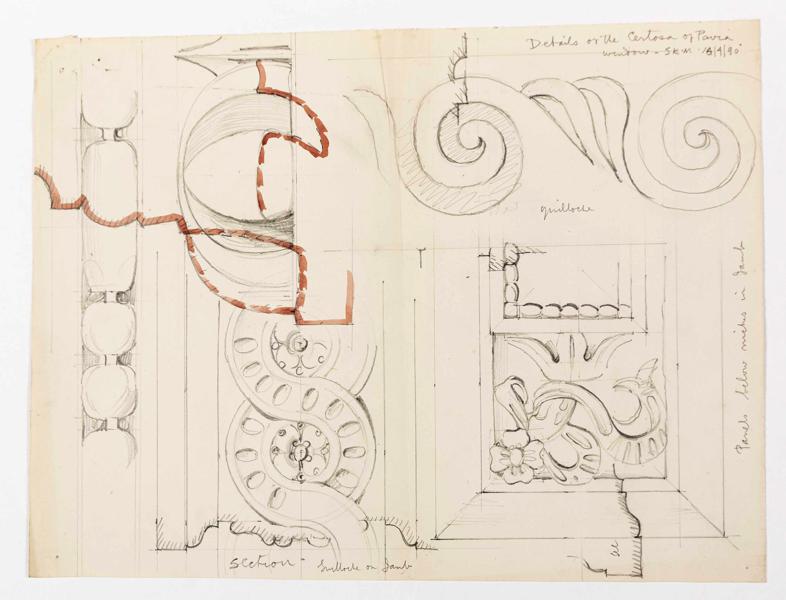 Details of the Certosa of Pavia
window - SKM
guilloche
Panels below niches in Jamb
Section - Guilloche on Jamb